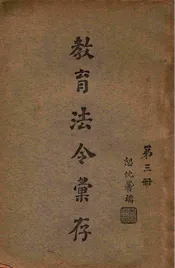 教育法令彙存
第三册